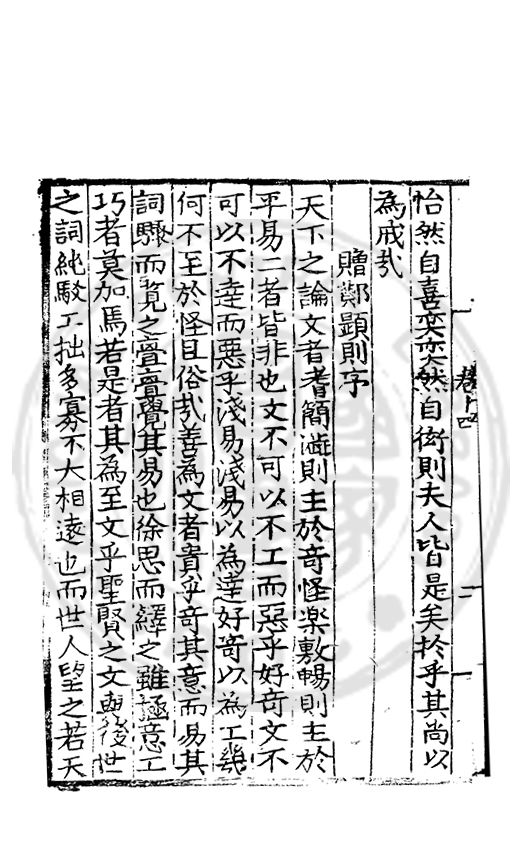 怡然自喜奕奕然自衒則夫人皆是矣於乎其尚以
為戒哉
贈鄭顕則序
天下之論文者耆簡澁則主於竒怪楽敷暢則主於
平易二者皆非也文不可以不工而惡乎好竒文不
可以不逹而惡乎淺易淺易以為逹好竒以為工幾
何不至於怪且俗哉善為文者貴乎竒其意而易其
詞驟而覽之亹亹覺其易也徐思而繹之雖極意工
巧者莫加焉若是者其為至文乎聖賢之文與後世
之詞純駁工拙多寡不大相遠也而世人望之若天
卷十四
二